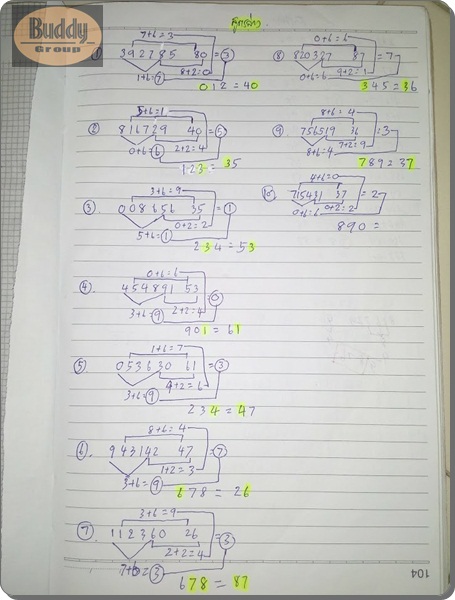 Buddy
Group
ลูกสาว
7+6=3
① 392785 80 = ③
8+2=0
1+6=7
012 = 40
② 5+6=1
816729 40 = ⑤
2+2=4
0+6=⑥
123 = 35
③ 3+6=9
008656 35 = ①
0+2=2
5+6=①
234 = 53
④ 0+6=6
454891 53 = ⓪
2+2=4
3+6=⑨
901 = 61
⑤ 1+6=7
053630 61 = ③
4+2=6
3+6=⑨
234 = 47
⑥ 8+6=4
943142 47 = ⑦
1+2=3
3+6=⑨
678 = 26
⑦ 3+6=9
112360 26 = ③
2+2=4
7+6=③
678 = 87
⑧ 0+6=6
820327 87 = 7
9+2=1
0+6=6
345 = 36
⑨ 8+6=4
756519 36 = 3
7+2=9
8+6=4
789 = 37
⑩ 4+6=0
715431 37 = 2
0+2=2
0+6=6
890 =
104